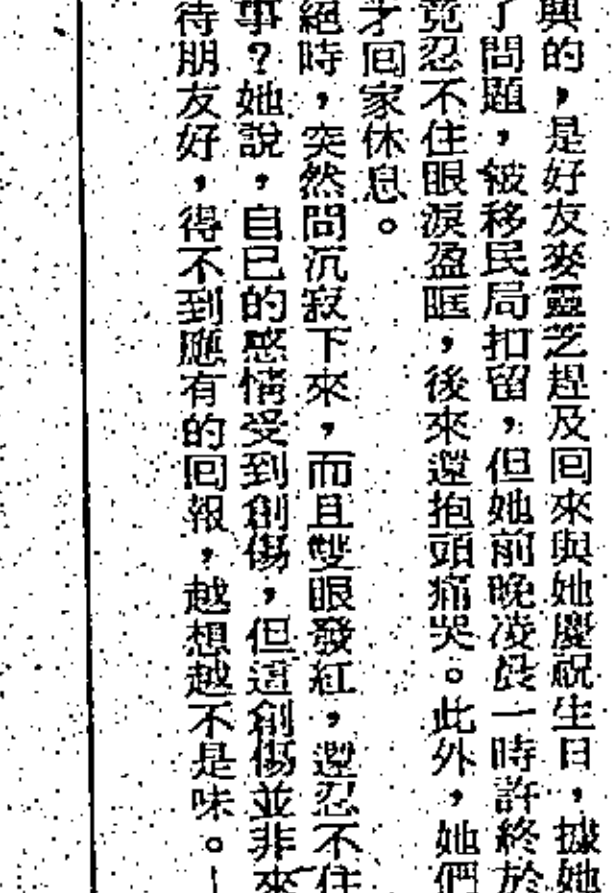 興的，是好友麥靈芝趕及回來與她慶祝生日，據她
了問題，被移民局扣留，但她前晚凌晨一時許終於
竟忍不住眼淚盈眶，後來還抱頭痛哭。此外，她們
才回家休息。
絕時，突然間沉寂下來，而且雙眼發紅，還忍不住
事？她說，自己的感情受到創傷，但這創傷並非來
待朋友好，得不到應有的回報，越想越不是味。